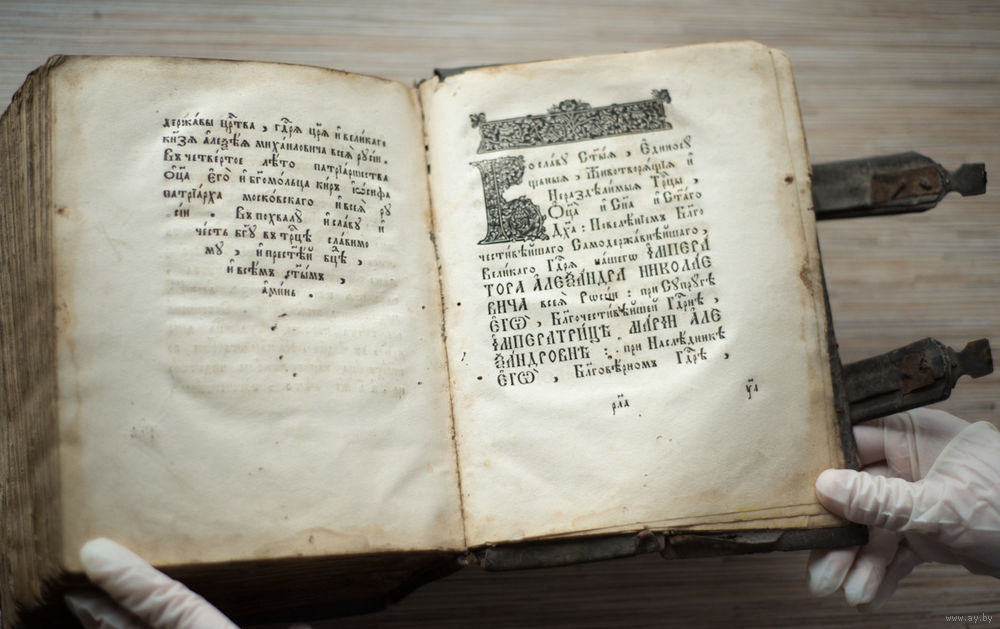 держа́вы црⷭ҇тва , гдⷭ҇рѧ црѧ̀ и҆ вели́каго
кнѧ́зѧ а҆леѯі́ѧ миха́иловича всеѧ̀ рꙋсі́и .
въ четве́ртое лѣ́то патрїа́ршества
ѻ҆ц҃а̀ є҆гѡ̀ и҆ бг҃омо́льца кѷръ і҆ѡ́сифа
патрїа́рха моско́вскаго и҆ всеѧ̀ рꙋ
сі́и . въ похвалꙋ̀ и҆ сла́вꙋ и҆
че́сть бг҃ꙋ въ трⷪ҇цѣ сла́вимо
мꙋ , и҆ прест҃ѣ́й бц҃ѣ ,
и҆ всѣ̑мъ ст҃ы̑мъ ,
а҆ми́нь .
Во сла́вꙋ Ст҃ы́ѧ , Є҆диносꙋ́
щныѧ , Животворѧ́щїѧ и҆
Нераздѣ́лимыѧ Трⷪ҇цы ,
Ѻ҆ц҃а̀ и҆ Сн҃а и҆ Ст҃а́гѡ
Дх҃а : Повелѣ́нїемъ Благо
чести́вѣйшаго Самодержа́внѣйшаго ,
Вели́каго Гдⷭ҇рѧ на́шегѡ И҆МПЕРА́
ТОРА А҆ЛЕѮА́НДРА НИКОЛА́Е
ВИЧА всеѧ̀ Рѡссі́и : при Сꙋпрꙋ́гѣ
Є҆ГѠ̀ , Бл҃гочести́вѣйшей Гдⷭ҇рнѣ ,
И҆МПЕРАТРИ́ЦѢ МАРІ́И А҆ЛЕ
ѮА́НДРОВНѢ : при Наслѣ́дникѣ
Є҆ГѠ̀ , Бл҃говѣ́рномъ Гдⷭ҇рѣ ,
www.ay.by